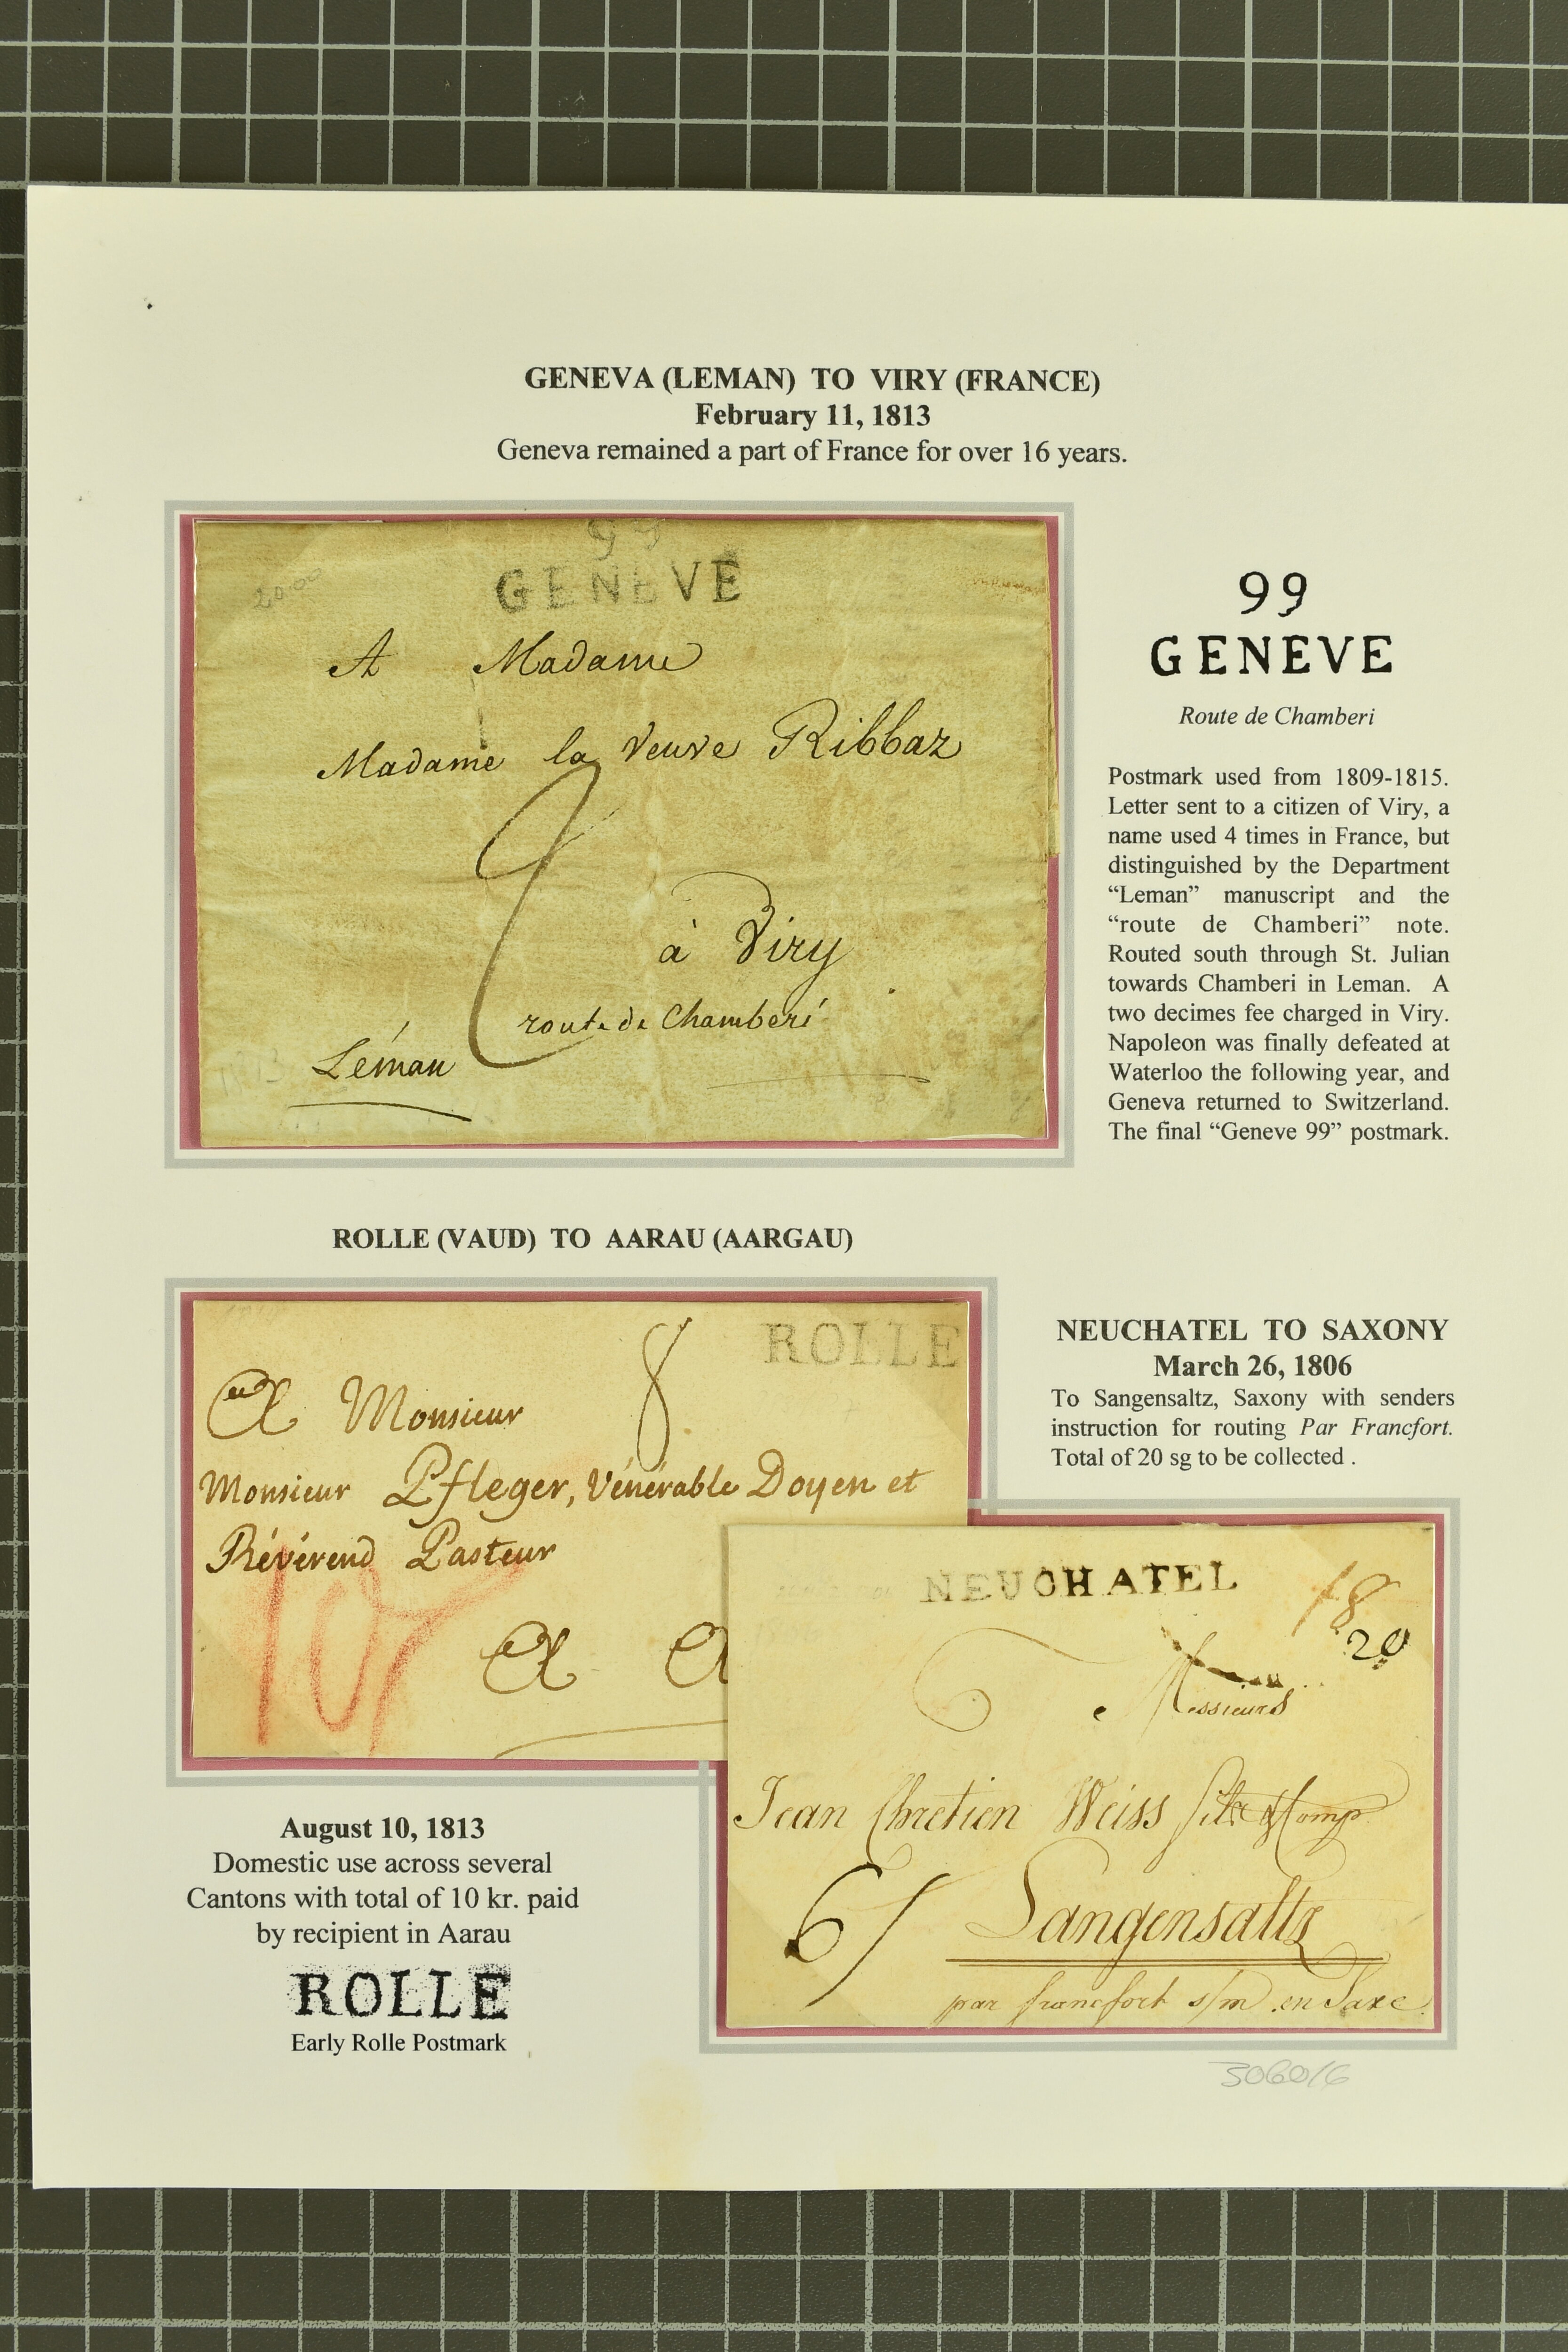 GENEVA (LEMAN) TO VIRY (FRANCE)
February 11, 1813
Geneva remained a part of France for over 16 years.
99
GENEVE
20.00
A Madame
Madame la Veuve Ribbaz
2
à Viry
route de Chamberi
Léman
1813
99
GENEVE
Route de Chamberi
Postmark used from 1809-1815.
Letter sent to a citizen of Viry, a
name used 4 times in France, but
distinguished by the Department
“Leman” manuscript and the
“route de Chamberi” note.
Routed south through St. Julian
towards Chamberi in Leman. A
two decimes fee charged in Viry.
Napoleon was finally defeated at
Waterloo the following year, and
Geneva returned to Switzerland.
The final “Geneve 99” postmark.
ROLLE (VAUD) TO AARAU (AARGAU)
ROLLE
8
A Monsieur
Monsieur Pfleger, Vénérable Doyen et
Révérend Pasteur
10
A A
NEUCHATEL TO SAXONY
March 26, 1806
To Sangensaltz, Saxony with senders
instruction for routing Par Francfort.
Total of 20 sg to be collected .
NEUCHATEL
18
20
Messieurs
Jean Chretien Weiss & Comp
6/
Langensaltz
par francfort s/m en Saxe
August 10, 1813
Domestic use across several
Cantons with total of 10 kr. paid
by recipient in Aarau
ROLLE
Early Rolle Postmark
306016